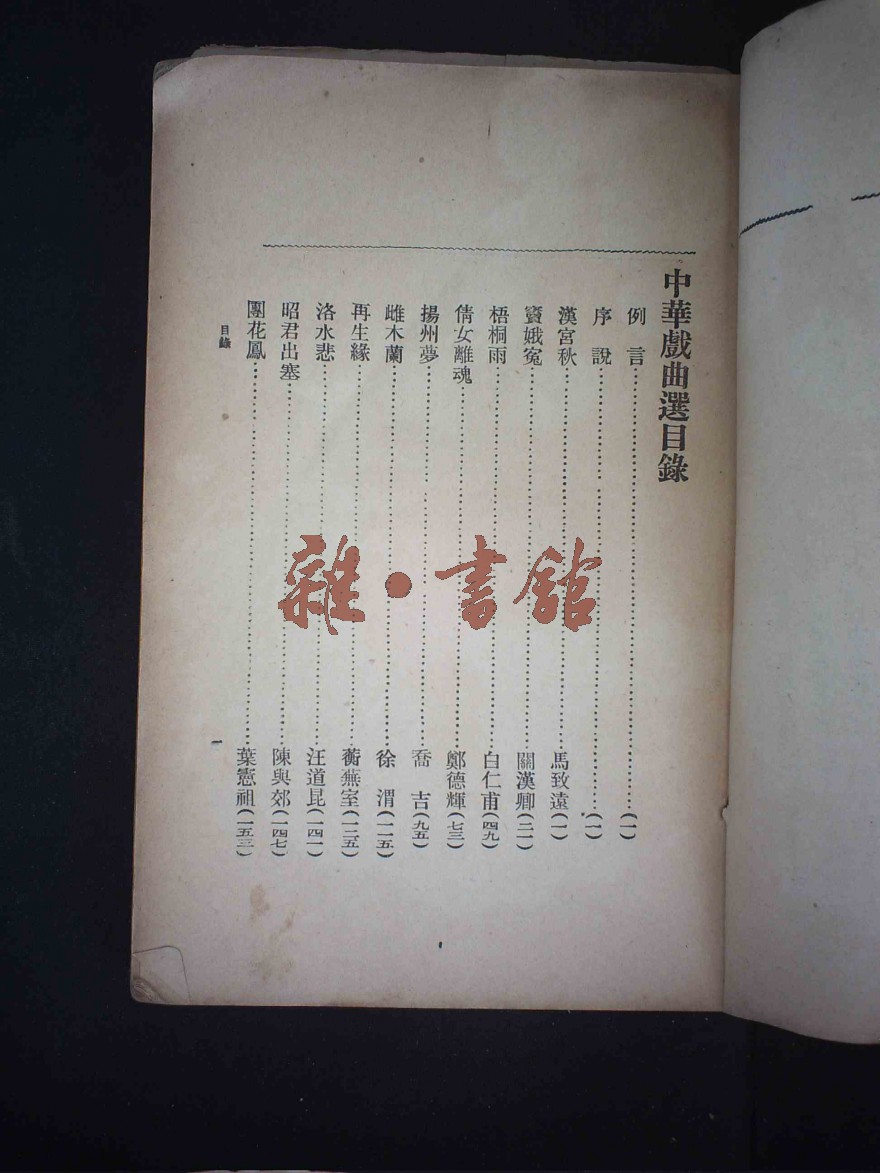 中華戲曲選目錄
例言……(一)
序說……(一)
漢宮秋……馬致遠(一)
竇娥冤……關漢卿(二一)
梧桐雨……白仁甫(四九)
倩女離魂……鄭德輝(七三)
揚州夢……喬吉(九五)
雌木蘭……徐渭(一一五)
再生緣……蘅蕪室(一二五)
洛水悲……汪道昆(一四一)
昭君出塞……陳與郊(一四七)
團花鳳……葉憲祖(一五三)
目錄
一
雜·書館